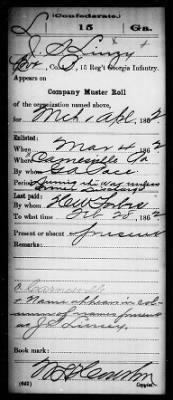 (Confederate.)
L 15 Ga.
J S Linzy
Co. , 15 Reg't Georgia Infantry.
Appears on
Company Muster Roll
of the organization named above,
for Mch & Apl, 1862
Enlisted:
When Mar 4, 1862
Where Carnesville Ga
By whom
Period during the war unless
sooner discharged
Last paid:
By whom
To what time Feb 28, 1862
Present or absent present
Remarks:
Carnesville
+ Name appears in column
of names present
as J S Linsey.
Book mark:
(642) Copyist.